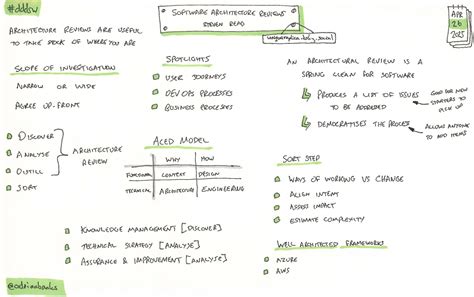 #dddsw
SOFTWARE ARCHITECTURE REVIEWS
STEVEN READ
APR
26
2025
ARCHITECTURE REVIEWS ARE USEFUL
TO TAKE STOCK OF WHERE YOU ARE
SCOPE OF INVESTIGATION
NARROW OR WIDE
AGREE UP-FRONT
DISCOVER
ANALYSE
DISTILL
SORT
ARCHITECTURE
REVIEW
SPOTLIGHTS
USER JOURNEYS
DEV OPS PROCESSES
BUSINESS PROCESSES
ACED MODEL
WHY HOW
FUNCTIONAL CONTEXT DESIGN
TECHNICAL ARCHITECTURE ENGINEERING
KNOWLEDGE MANAGEMENT [DISCOVER]
TECHNICAL STRATEGY [ANALYSE]
ASSURANCE & IMPROVEMENT [ANALYSE]
AN ARCHITECTURAL REVIEW IS A
SPRING CLEAN FOR SOFTWARE
PRODUCES A LIST OF ISSUES
TO BE ADDRESSED
GOOD FOR NEW
STARTERS TO
PICK UP
DEMOCRATISES THE PROCESS
ALLOW ANYONE
TO ADD ITEMS
SORT STEP
WAYS OF WORKING VS CHANGE
ALIGN INTENT
ASSESS IMPACT
ESTIMATE COMPLEXITY
WELL ARCHITECTED FRAMEWORKS
AZURE
AWS
@adrianbanks